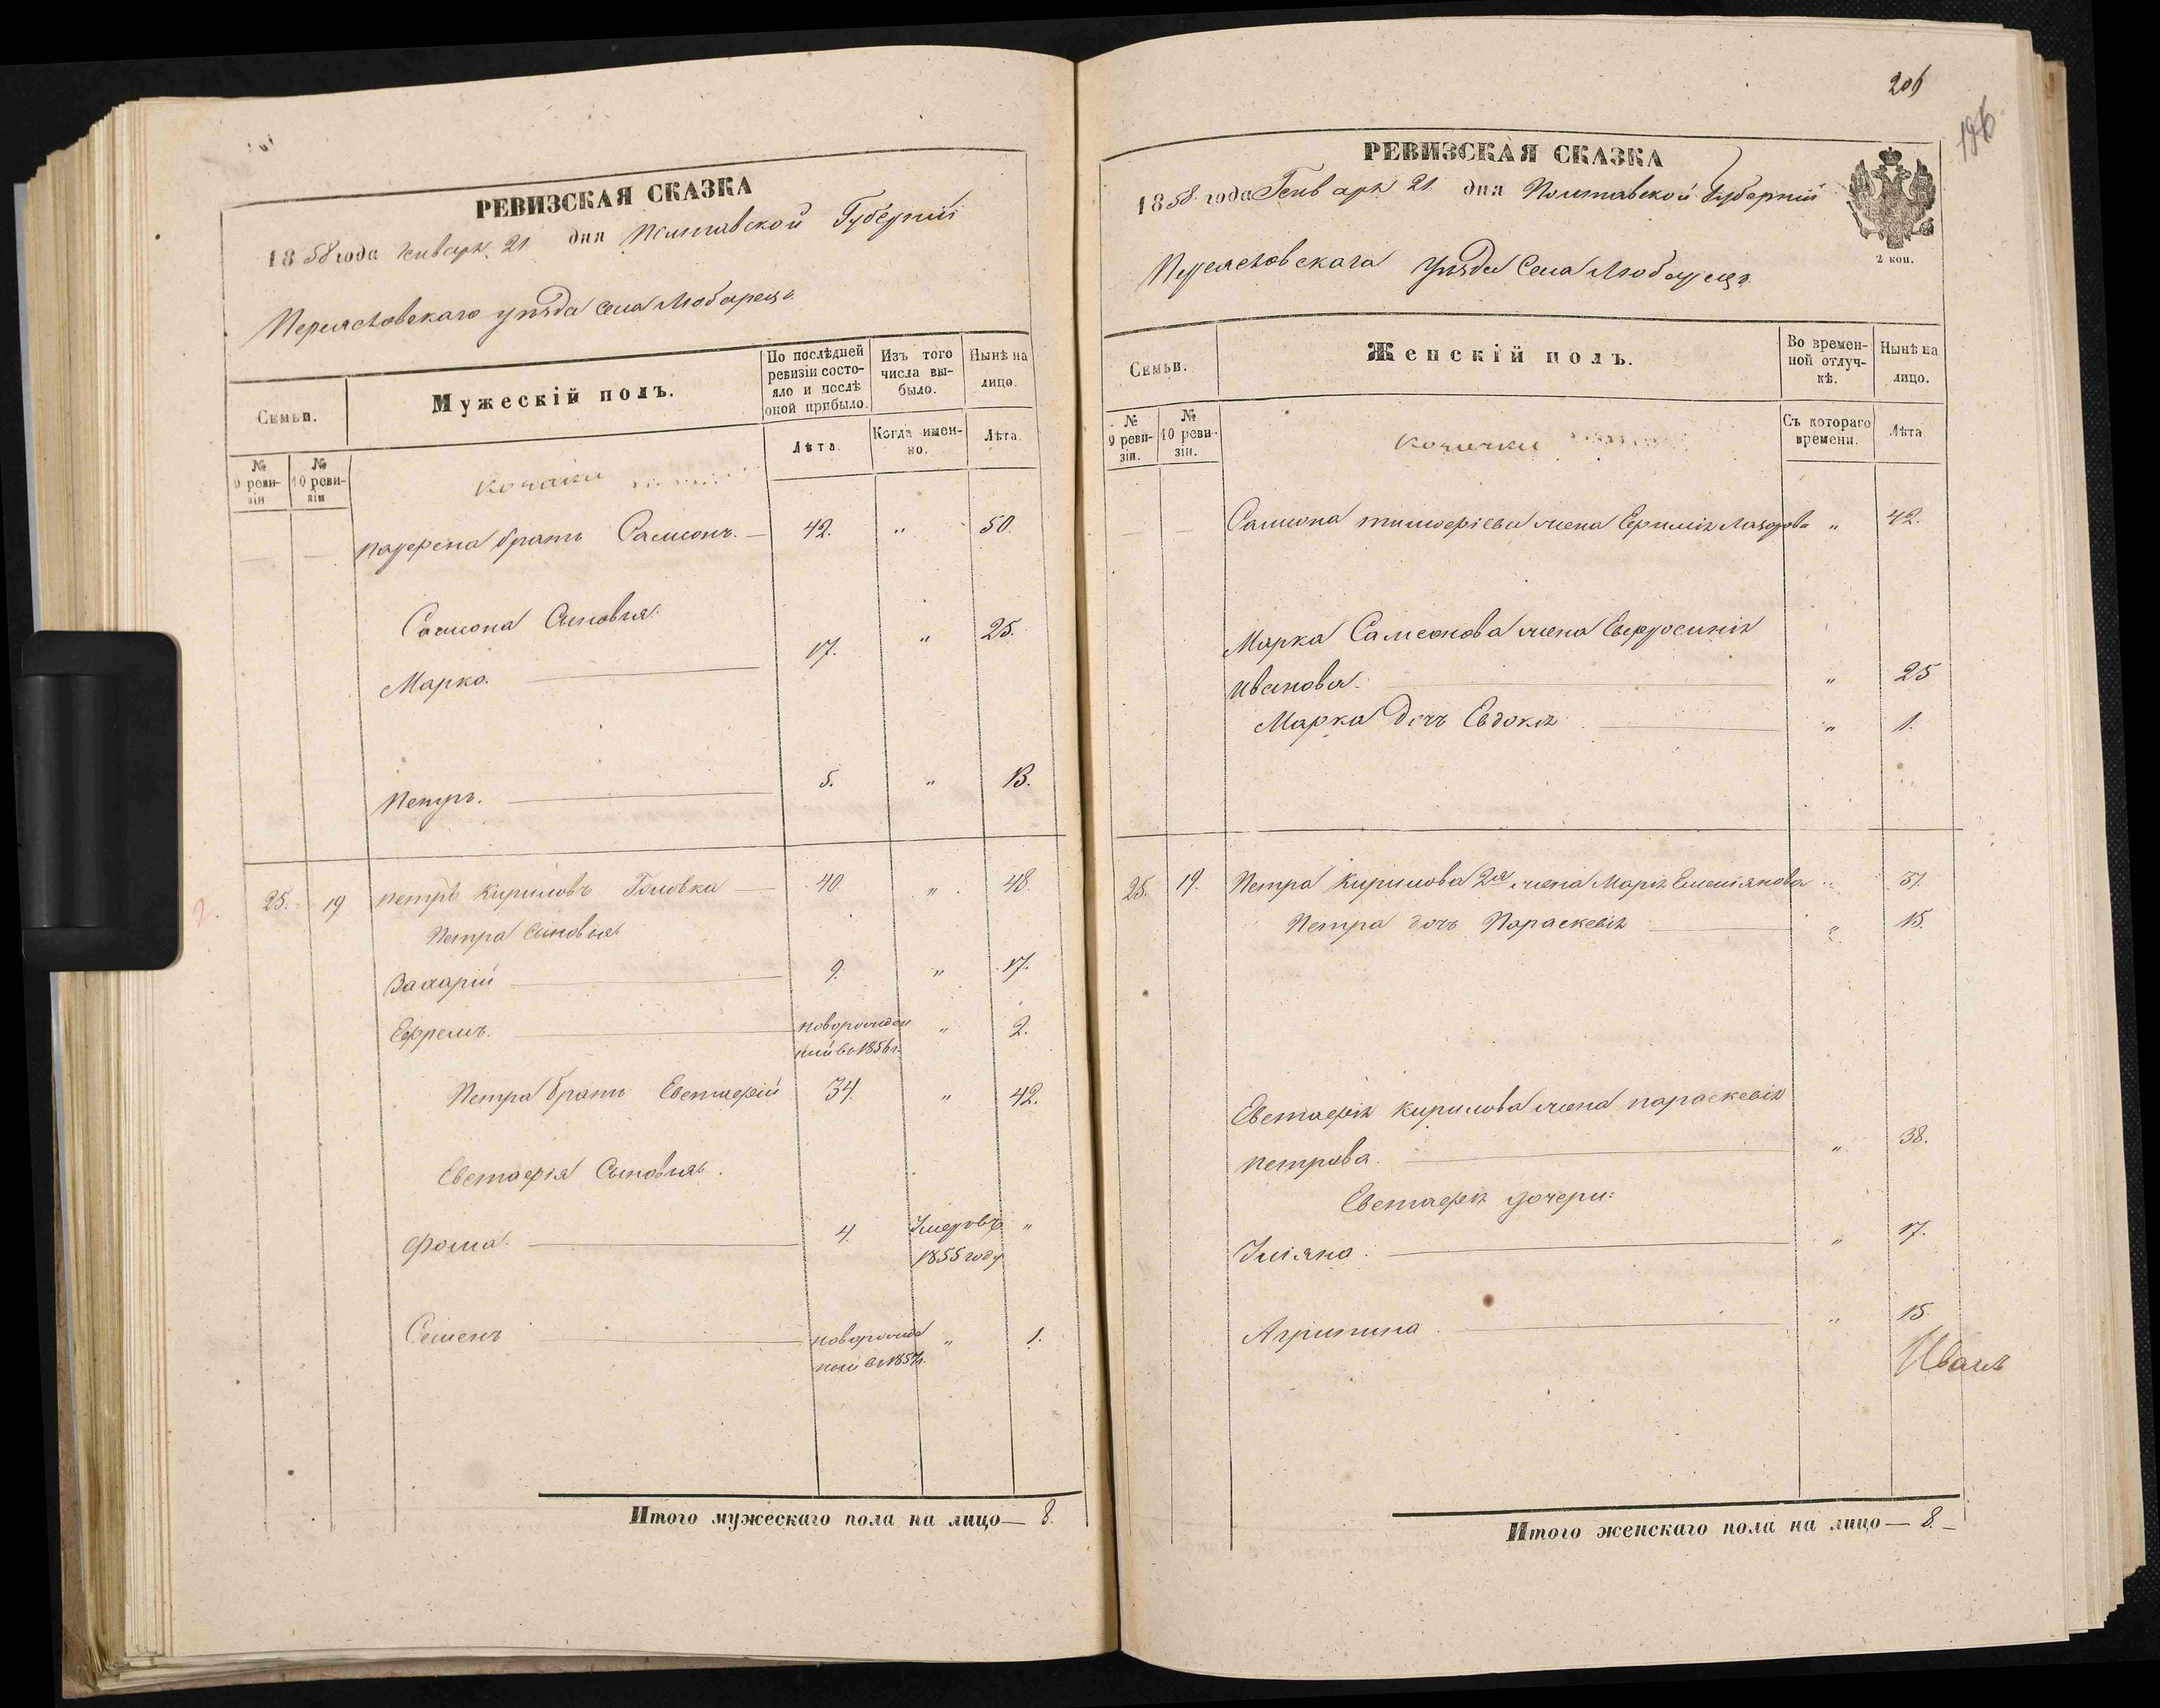 РЕВИЗСКАЯ СКАЗКА
1858 года Января 21 дня Полтавской Губерніи
Переясловскаго уѣзда села Любарецъ
Семьи.
Мужескій полъ.
По послѣдней ревизіи состояло и послѣ оной прибыло.
Изъ того числа выбыло.
Нынѣ на лицо.
№ 9 ревизіи
№ 10 ревизіи
Козаки
Лѣта.
Когда именно.
Лѣта.
братъ Самсонъ. — 42. " 50.
Самсона Сыновья:
Марко. 17. " 25.
Петръ. 5. " 13.
25. 19 Петръ Кириловъ Головка — 40. " 48.
Петра сыновья:
Захарій 9. " 17.
Ефремъ. новорожден " 2.
ный въ 1856 г.
Петра братъ Евстафій 34. " 42.
Евстафія Сыновья.
Фома. 4. Умеръ въ "
1855 году
Семенъ новорожде " 1.
ный въ 1857 г.
Итого мужескаго пола на лицо — 8.
206
196
РЕВИЗСКАЯ СКАЗКА
1858 года Генваря 21 дня Полтавской Губерніи
2 коп.
Переясловскаго уѣзда Села Любарецъ
Семьи.
Женскій полъ.
Во временной отлучкѣ.
Нынѣ на лицо.
№ 9 ревизіи.
№ 10 ревизіи.
Козачки
Съ котораго времени.
Лѣта.
Самсона Тимоферіева жена " 42.
Марка Самсонова жена Евфросинія
Иванова. " 25
Марка дочь Евдокія " 1.
25. 19. Петра Кирилова 2я жена Марія Емельянова " 37.
Петра дочь Параскевія " 15.
Евстафія Кирилова жена Параскевія
Петрова. " 38.
Евстафія дочери:
Уліяна. " 17.
Агрипина. " 15.
Иванъ
Итого женскаго пола на лицо — 8. —